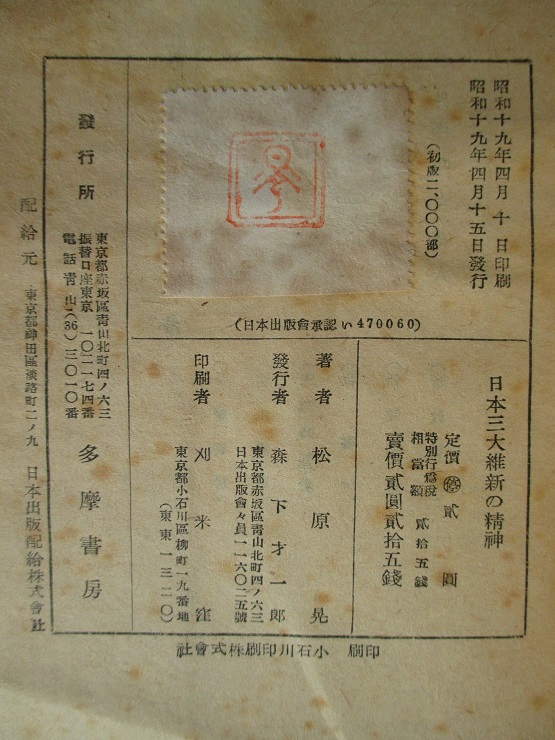 昭和十九年四月十日印刷
昭和十九年四月十五日發行
(初版二、〇〇〇部)
(日本出版會承認い470060)
日本三大維新の精神
定價 停 貳圓
特別行爲税
相當額 貳拾五錢
賣價貳圓貳拾五錢
著者 松原晃
發行者 森下才一郎
東京都赤坂區靑山北町四ノ六三
日本出版會々員一一六〇二五號
印刷者 刈米窪
東京都小石川區柳町一九番地
(東東一三二〇)
發行所 多摩書房
東京都赤坂區靑山北町四ノ六三
振替口座東京一〇二一七四番
電話靑山(36)三〇一〇番
配給元 東京都神田區淡路町二ノ九 日本出版配給株式會社
印刷 小石川印刷株式會社